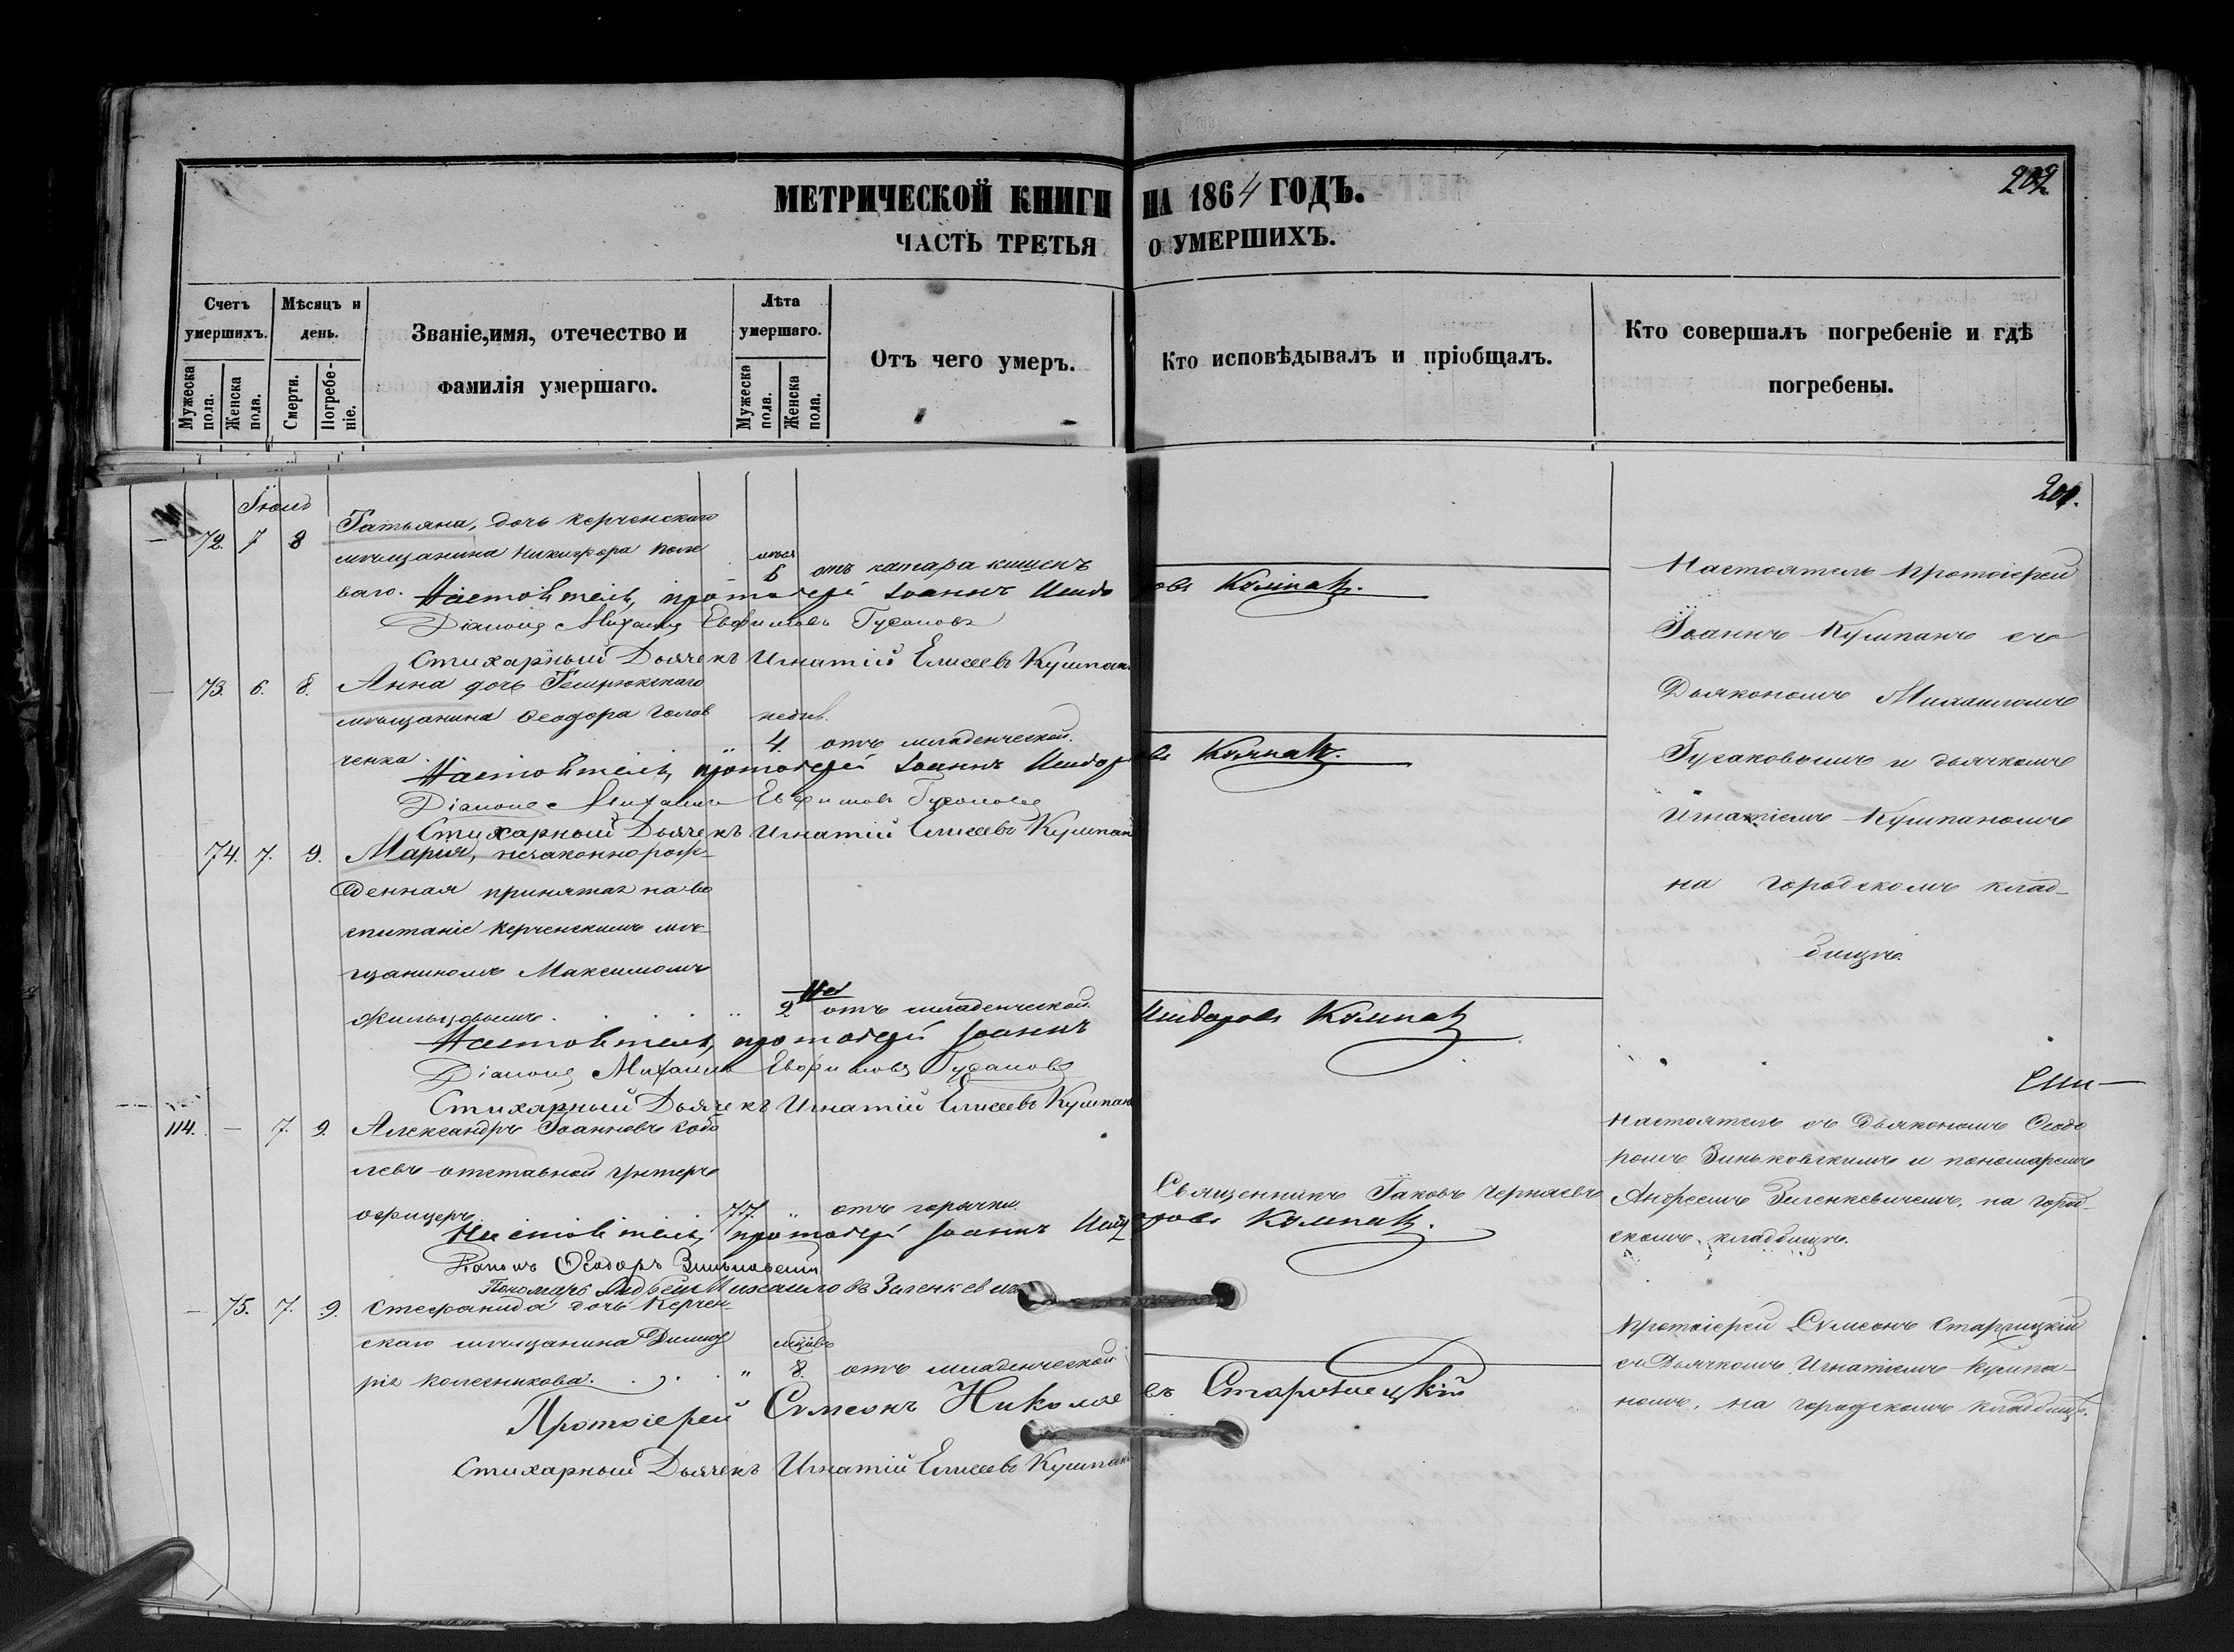 202
МЕТРИЧЕСКОЙ КНИГИ НА 1864 ГОДЪ.
ЧАСТЬ ТРЕТЬЯ О УМЕРШИХЪ.
Счетъ умершихъ.
Мужеска пола.
Женска пола.
Мѣсяцъ и день.
Смерти.
Погребе-ніе.
Званіе,имя, отечество и
фамилія умершаго.
Лѣта умершаго.
Мужеска пола.
Женска пола.
Отъ чего умеръ.
Кто исповѣдывалъ и пріобщалъ.
Кто совершалъ погребеніе и гдѣ
погребены.
201.
Іюль
— 72. 7 8 Татьяна, дочь керченскаго
мѣщанина Никифора Поле
ваго. 6 отъ катара кишекъ
Настоятель, протоіерей Іоаннъ Исидоровъ Кумпанъ.
Діаконъ Михаилъ Евфимовъ Гусаковъ
Стихарный Дьячекъ Игнатій Елисеевъ Кумпанъ
— 73. 6. 8. Анна дочь Темрюкскаго
мѣщанина Ѳеодора Голов
ченка. " недѣль. 4. отъ младенческой.
Настоятель, протоіерей Іоаннъ Исидоровъ Кумпанъ.
Діаконъ Михаилъ Евфимовъ Гусаковъ
Стихарный Дьячекъ Игнатій Елисеевъ Кумпанъ
74. 7. 9. Марія, незаконнорож-
денная принятая на во
спитаніе Керченскимъ мѣ-
щаниномъ Максимомъ
Жильцовымъ. " 2 отъ младенческой.
Настоятель, протоіерей Іоаннъ Исидоровъ Кумпанъ
Діаконъ Михаилъ Евфимовъ Гусаковъ
Стихарный Дьячекъ Игнатій Елисеевъ Кумпанъ
Настоятель Протоіерей
Іоаннъ Кумпанъ съ
Дьякономъ Михаиломъ
Гусаковымъ и дьячкомъ
Игнатіемъ Кумпаномъ
на городскомъ клад-
бищѣ.
114. — 7. 9. Александръ Іоанновъ Кобе
левъ отставной унтеръ
офицеръ 77. " отъ горячки
Священникъ Іаковъ Черняевъ
Настоятель съ Дьякономъ Ѳеодо
ромъ Зиньковскимъ и пономаремъ
Андреемъ Зеленкевичемъ, на город-
скомъ кладбищѣ.
Настоятель, протоіерей Іоаннъ Исидоровъ Кумпанъ.
Діаконъ Ѳеодоръ Зиньковскій
Пономарь Андрей Михайловъ Зеленкевичъ
— 75. 7. 9. Стефанида дочь Керчен-
скаго мѣщанина Димит
рія Колесникова. " мѣсяцовъ 8. отъ младенческой
Протоіерей Сѵмеонъ Николаевъ Старицкій
Стихарный Дьячекъ Игнатій Елисеевъ Кумпанъ
Протоіерей Сѵмеонъ Старицкій
съ Дьячкомъ Игнатіемъ Кумпа-
номъ, на городскомъ кладбищѣ.